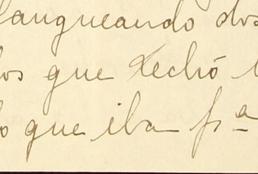 flanqueando dos
los que echó
que iba pª